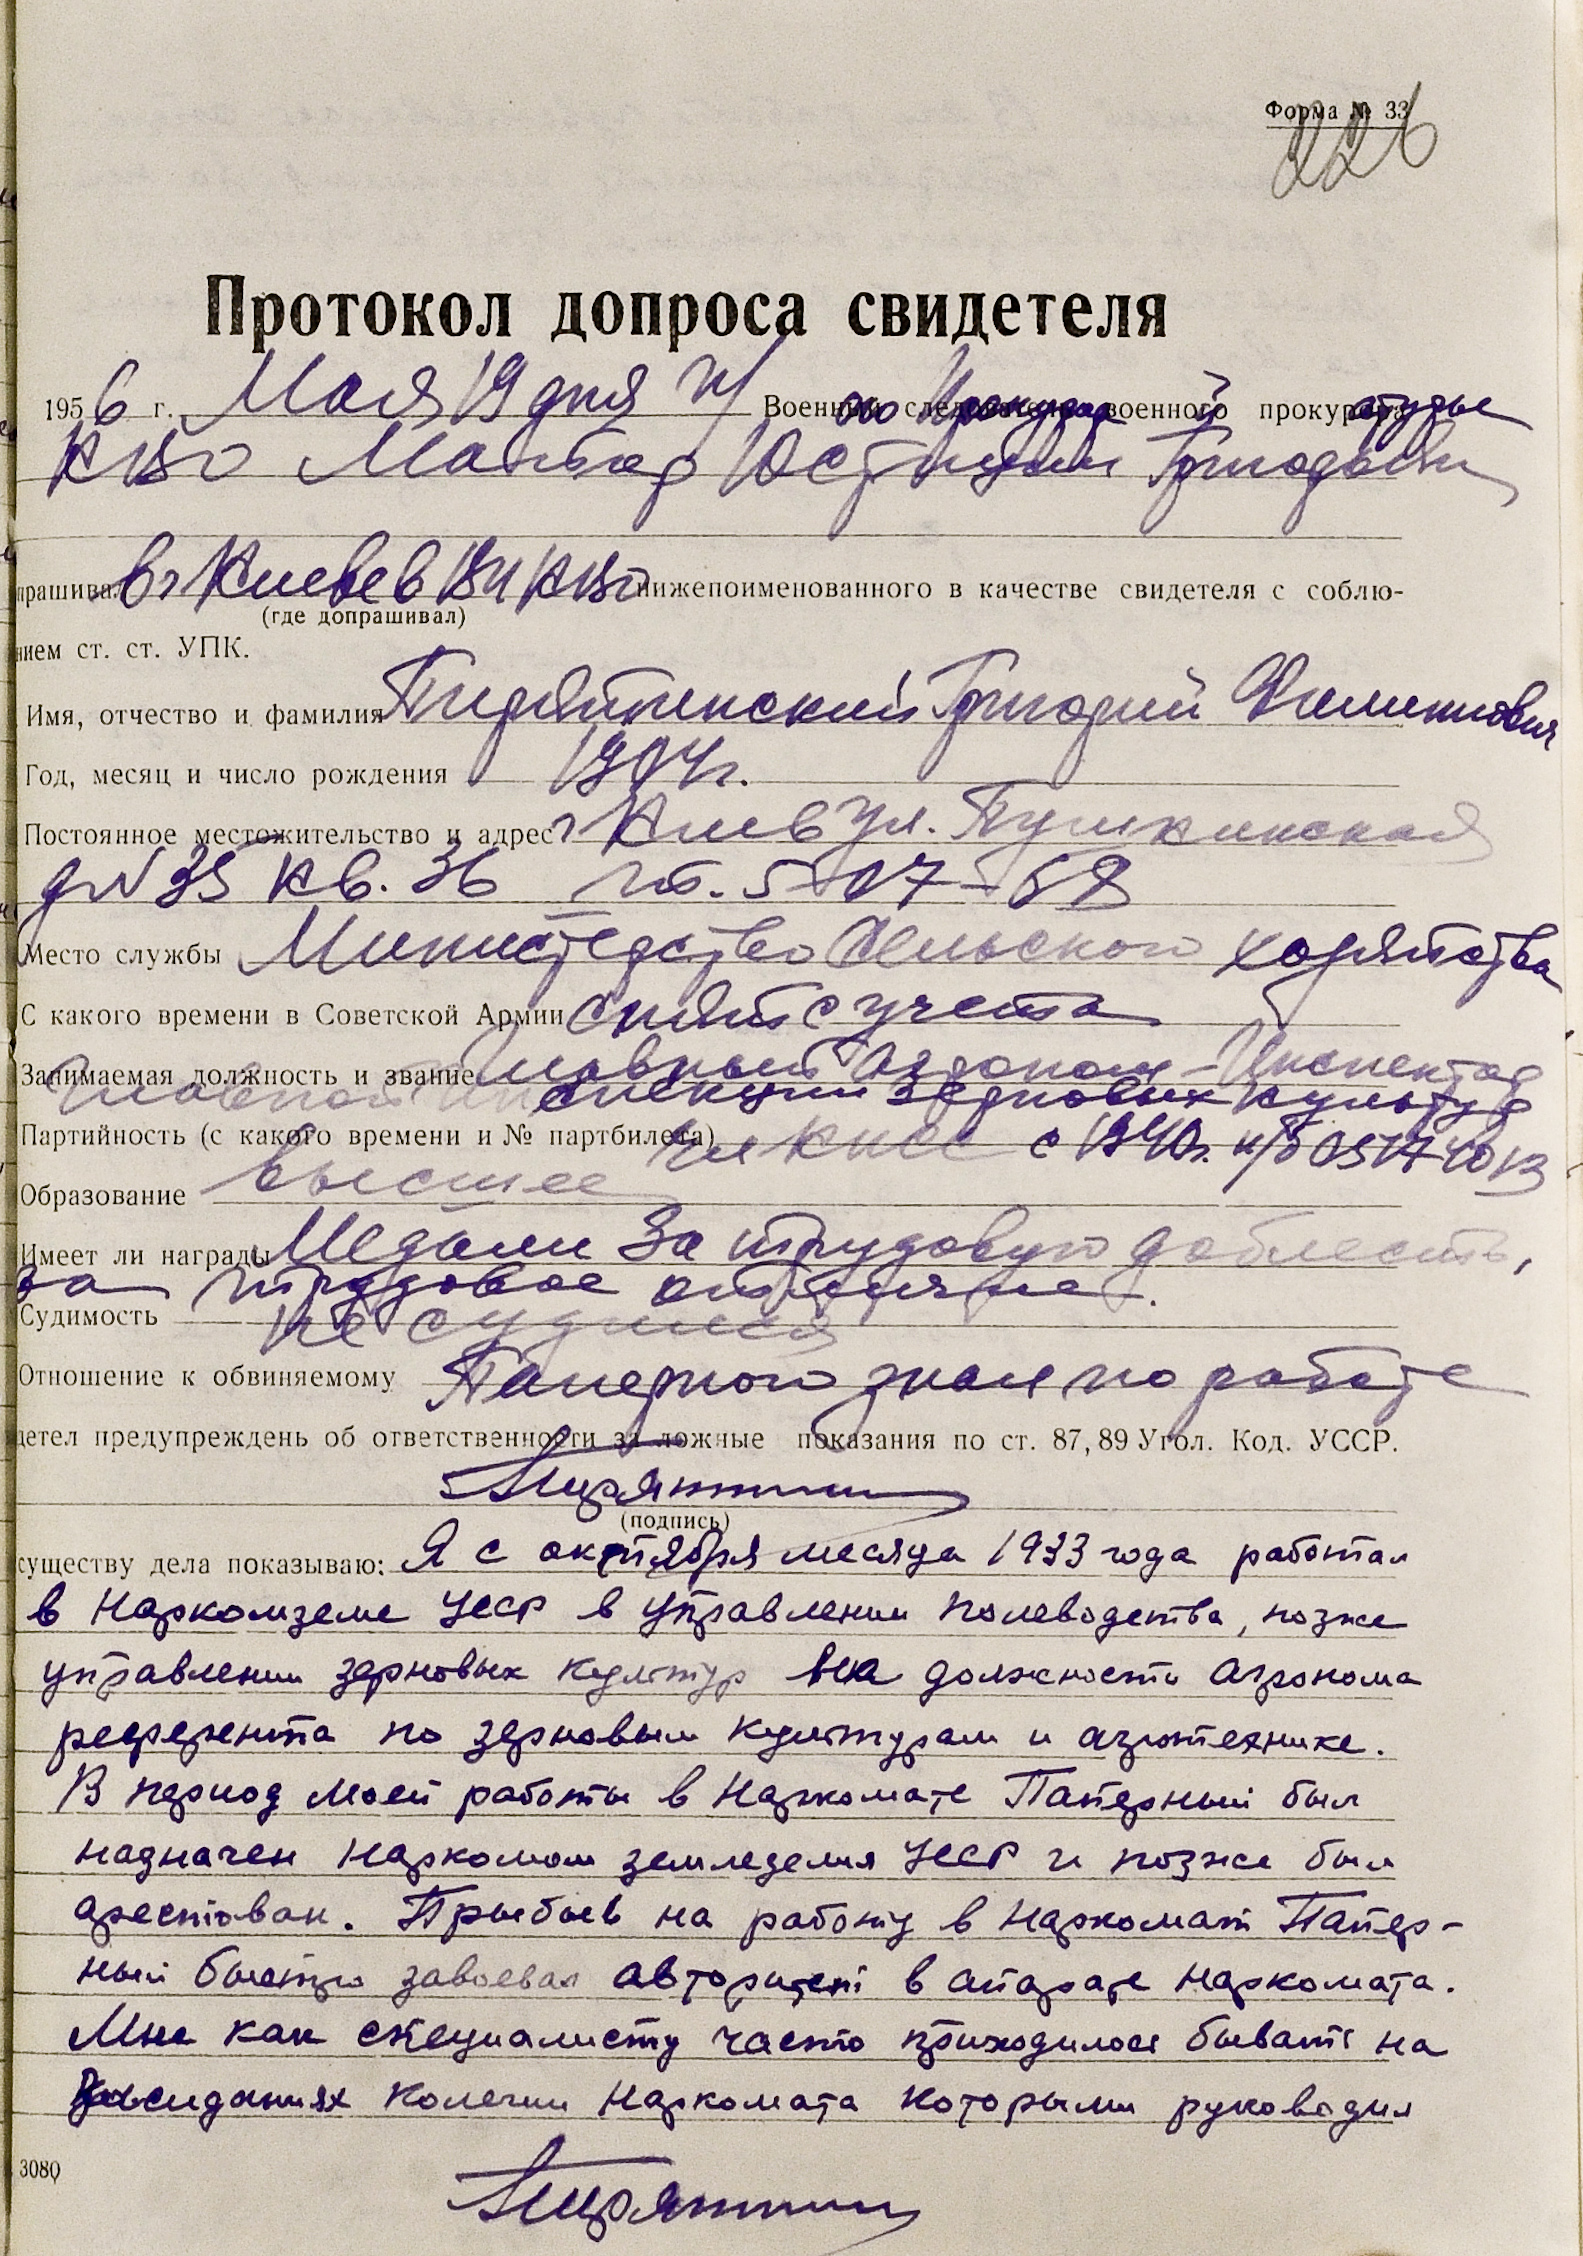 Форма № 33
226
Протокол допроса свидетеля
1956 г. Мая 19 дня Военный следователь военной прокуратуры
КВО Юстиции
прашивал в г Киеве в ВП КВО нижепоименованного в качестве свидетеля с соблю-
(где допрашивал)
нием ст. ст. УПК.
Имя, отчество и фамилия Пирятинский Григорий Филиппович
Год, месяц и число рождения 1904 г.
Постоянное местожительство и адрес г Киев ул. Пушкинская
д N 35 кв. 36 т. 5-07-68
Место службы Министерство Сельского хозяйства
С какого времени в Советской Армии снят с учета
Занимаемая должность и звание Главный агроном - Инспектор
Главной Инспекции зерновых культур
Партийность (с какого времени и № партбилета) Чл КПСС с 1940г. п/б
Образование высшее
Имеет ли награды Медали За трудовую доблесть,
за трудовое отличие.
Судимость не судился
Отношение к обвиняемому Паперного знал по работе
детел предупреждень об ответственности за ложные показания по ст. 87, 89 Угол. Код. УССР.
(подпись)
существу дела показываю: Я с октября месяца 1933 года работал
в Наркомземе УССР в управлении полеводства, позже
управлении зерновых культур на должности агронома
референта по зерновым культурам и агротехнике.
В период моей работы в Наркомате Паперный был
назначен Наркомом земледелия УССР и позже был
арестован. Прыбыв на работу в Наркомат Папер-
ный быстро завоевал авторитет в апарате Наркомата.
Мне как специалисту часто приходилось бывать на
заседаниях колегии Наркомата которыми руководил
3080